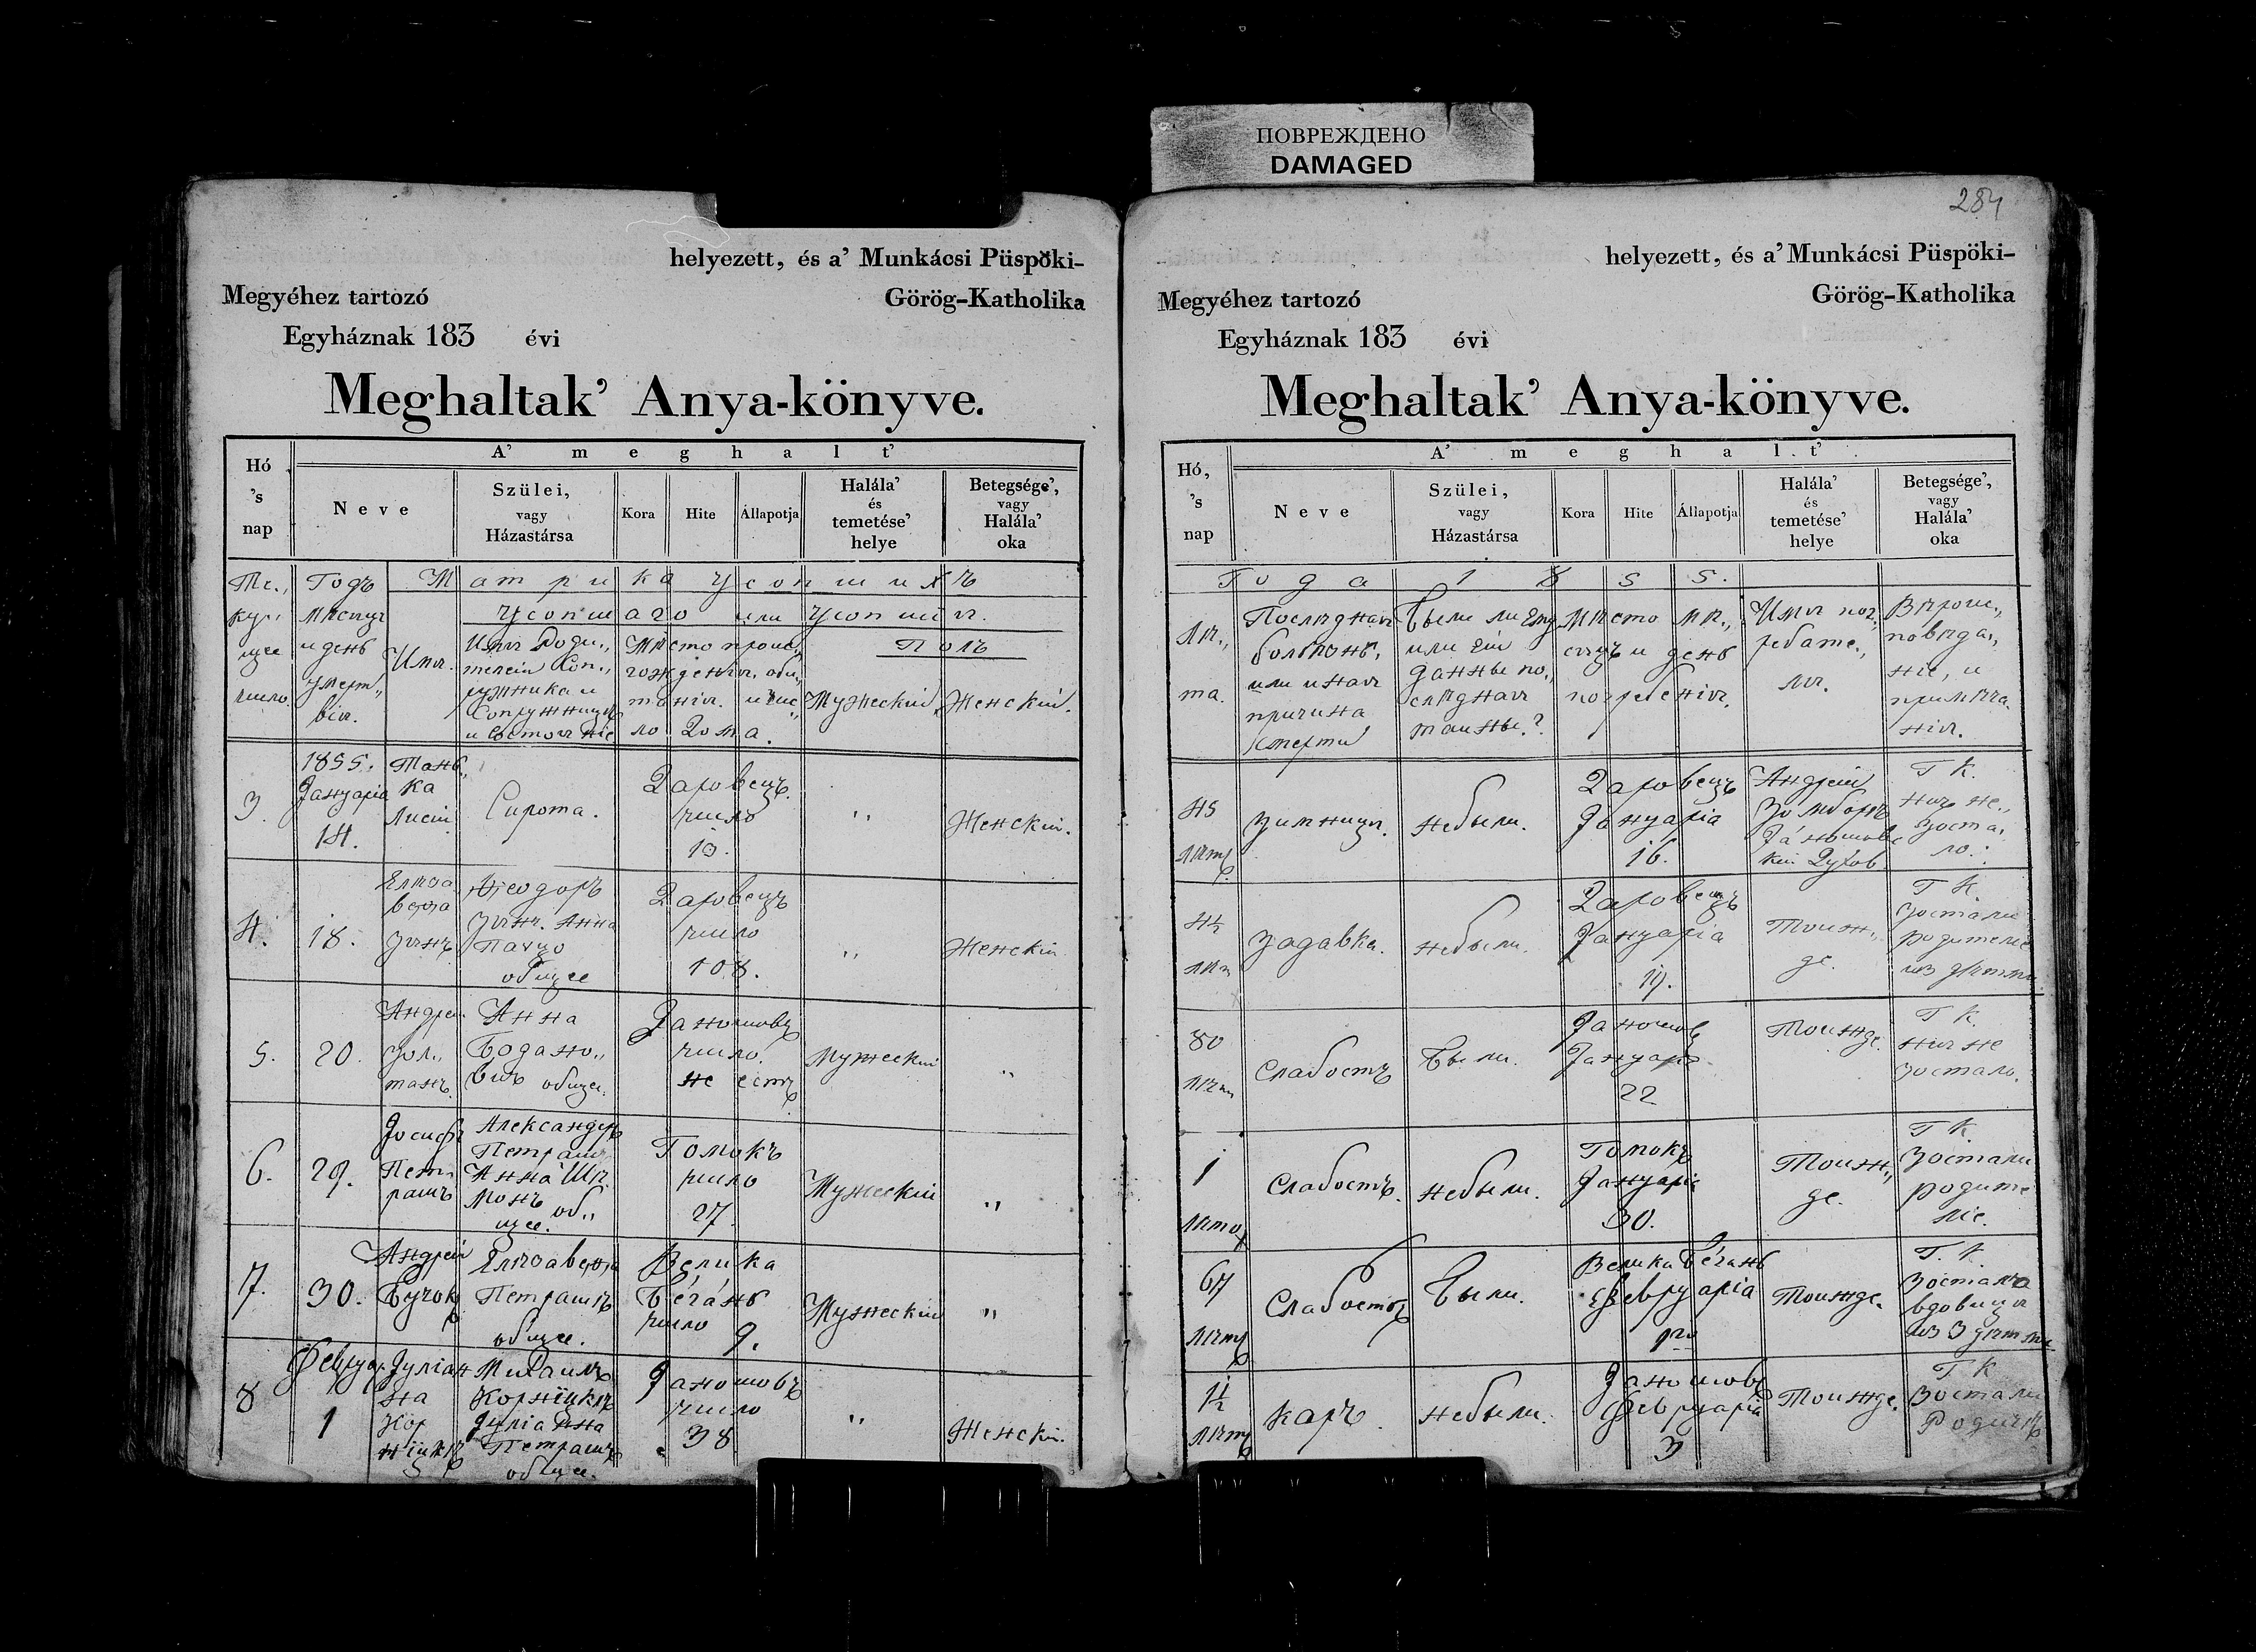 ПОВРЕЖДЕНО
DAMAGED
helyezett, és a' Munkácsi Püspöki-
Megyéhez tartozó Görög-Katholika
Egyháznak 183 évi
Meghaltak' Anya-könyve.
A' meghalt'
Hó 's nap
Neve
Szülei, vagy Házastársa
Kora
Hite
Állapotja
Halála' és temetése' helye
Betegsége', vagy Halála' oka
Матрика Усопшихъ
Усопшаго или Усопшія.
Те,,
кущее
число.
Годъ
Мѣсяцъ
и день
умерт,,
вія.
Имя.
Имя Роди,,
телей Соп,,
ружника и
Сопружницѣ
и Состояніе
Мѣсто проис,,
хожденія, оби,,
танія. и чис,,
ло Дома.
Полъ
Мужескій.
Женскій.
3.
1855.
Јануаріа
14.
Лисей
Сирота.
Даровецъ.
число
13.
,,
Женскій.
4.
18.
Елиса
веѳа
Ѳеодоръ
Анна
общее
Даровецъ
число
108.
,,
Женскій
5.
20.
Андрей
Зол,,
танъ.
Анна
Богдано,,
вичъ общее.
Јаношовъ
число
не естъ
Мужескій
,,
6.
29.
Јосифъ
Пет,,
рашъ
Александеръ
Петрашъ
Анна
общее.
Гомокъ
число
27.
Мужескій
,,
7.
30.
Андрей
Бучок
Елисавеѳа
Петрашъ
общее.
Велика
Бéгáнь
число 9.
Мужескій
,,
8
Февруар.
1
Јуліан
на
Михаилъ
Јуліанна
Петрашъ
общее.
Јаношовъ
число
38
,,
Женскій.
284
helyezett, és a' Munkácsi Püspöki-
Megyéhez tartozó Görög-Katholika
Egyháznak 183 évi
Meghaltak' Anya-könyve.
A' meghalt'
Hó, 's nap
Neve
Szülei, vagy Házastársa
Kora
Hite
Állapotja
Halála' és temetése' helye
Betegsége', vagy Halála' oka
Года 1855.
Лѣ,,
та.
Послѣдная
болѣзнь,
или иная
причина
смерти
Были ли Ему
или Ей
данны по,,
слѣдная
таины.?
Мѣсто мѣ,,
сяцъ и день
погребенія.
Имя пог,,
ребате,,
ля.
Вѣроис,,
повѣда,,
ніе, и
примѣча
нія.
45
лѣтъ
зимница.
небыли.
Даровецъ
Јануаріа
16.
Андрей
Г К.
ничъ не,,
зоста,,
ло.
4½
лѣт
задавка.
небыли.
Даровецъ
Јануаріа
19.
Тоиж,,
де.
Г К.
зостали
родителіе
из дѣтми
80
лѣт
Слабость
Были.
Јаношов
Јануаріа
22
Тоижде.
Г К.
нич не
зостало.
1
лѣто
Слабость.
небыли.
Гомокъ
Јануаріа
30.
Тоиж,,
де.
Г К.
Зостали
родите
ліе.
67
лѣтъ
Слабость
Были.
Велика Бéгáнь
Февруаріа
1го
Тоижде.
Г. К.
Зостала
вдовица
из 3 дѣтми
1½
лѣтъ
каръ
небыли.
Јаношовъ
Февруаріа
3
Тоижде.
Г К
Зостали